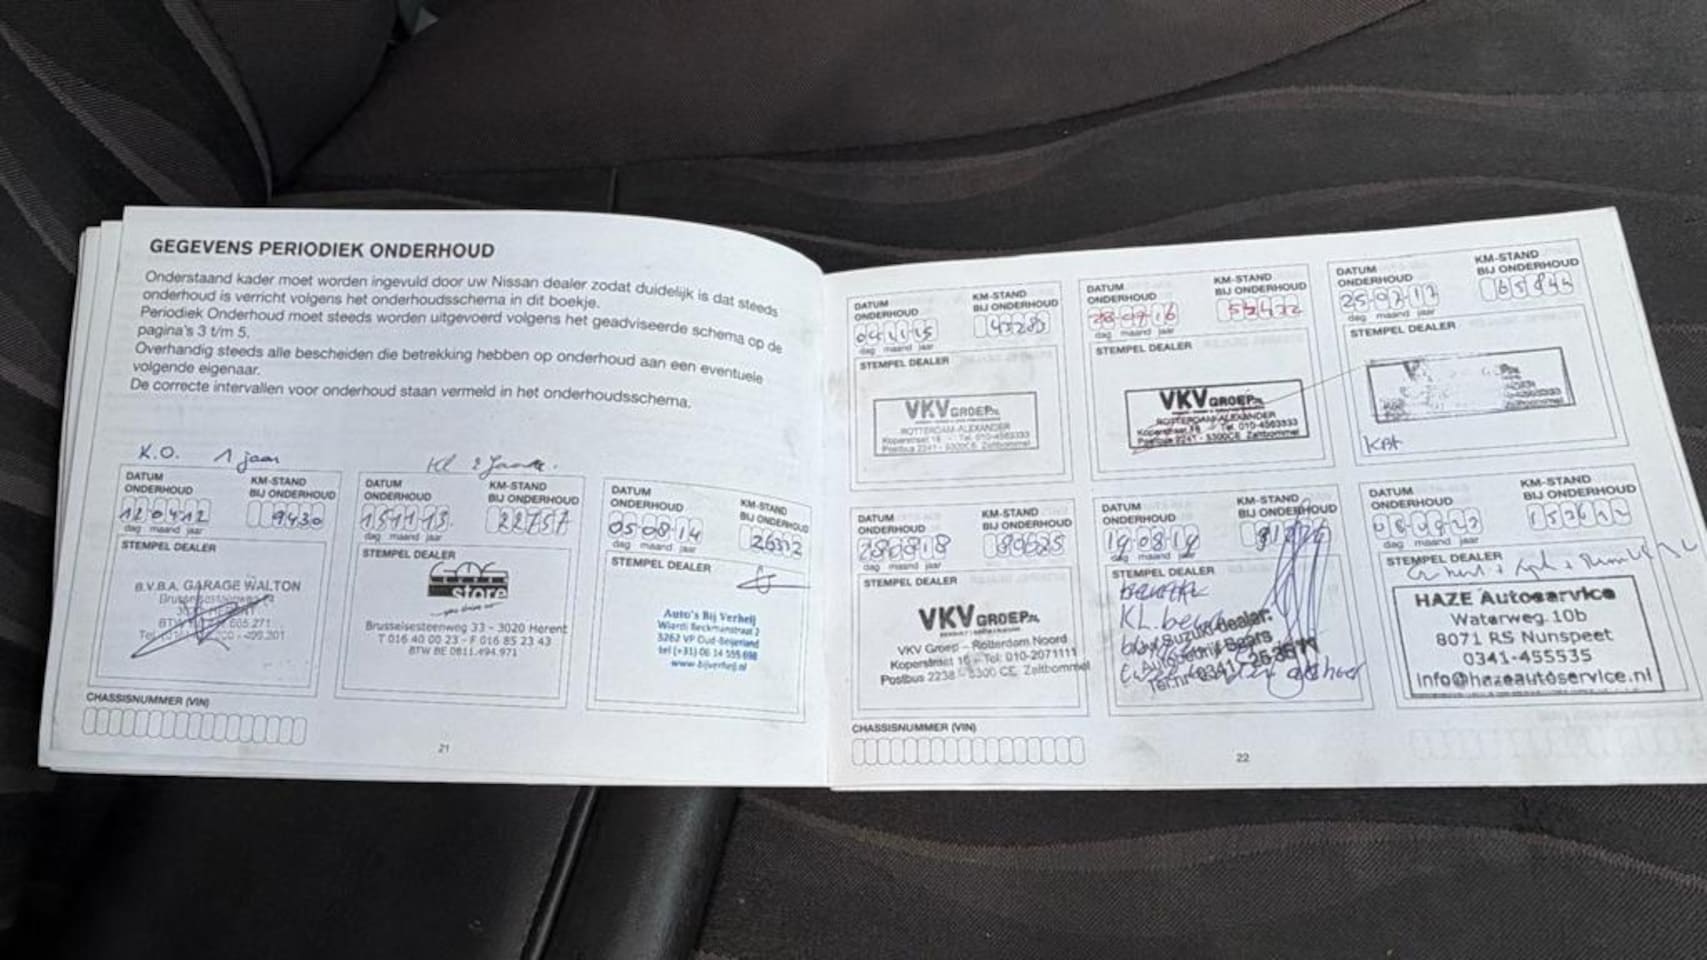 GEGEVENS PERIODIEK ONDERHOUD
Onderstaand kader moet worden ingevuld door uw Nissan dealer zodat duidelijk is dat steeds
onderhoud is verricht volgens het onderhoudsschema in dit boekje.
Periodiek Onderhoud moet steeds worden uitgevoerd volgens het geadviseerde schema op de
pagina's 3 t/m 5.
Overhandig steeds alle bescheiden die betrekking hebben op onderhoud aan een eventuele
volgende eigenaar.
De correcte intervallen voor onderhoud staan vermeld in het onderhoudsschema.
K.O. 1 jaar
DATUM
ONDERHOUD
KM-STAND
BIJ ONDERHOUD
120412
9430
dag maand jaar
STEMPEL DEALER
B.V.B.A. GARAGE WALTON
Kl 2
DATUM
ONDERHOUD
KM-STAND
BIJ ONDERHOUD
151113
22757
dag maand jaar
STEMPEL DEALER
store
Brusselsesteenweg 33 - 3020 Herent
T 016 40 00 23 - F 016 85 23 43
BTW BE 0811.494.971
DATUM
ONDERHOUD
KM-STAND
BIJ ONDERHOUD
050814
26332
dag maand jaar
STEMPEL DEALER
Auto's Bij Verheij
Wiardi Beckmanstraat 2
3262 VP Oud-Beijerland
tel (+31) 06 14 555 698
www.bijverheij.nl
CHASSISNUMMER (VIN)
21
DATUM
ONDERHOUD
KM-STAND
BIJ ONDERHOUD
041115
43283
dag maand jaar
STEMPEL DEALER
VKV GROEP.NL
ROTTERDAM-ALEXANDER
Koperstraat 16 - Tel. 010-4563333
Postbus 2241 - 5300CE Zaltbommel
DATUM
ONDERHOUD
KM-STAND
BIJ ONDERHOUD
dag maand jaar
STEMPEL DEALER
VKV GROEP.NL
ROTTERDAM-ALEXANDER
Koperstraat 16 - Tel. 010-4563333
Postbus 2241 - 5300CE Zaltbommel
DATUM
ONDERHOUD
KM-STAND
BIJ ONDERHOUD
250717
dag maand jaar
STEMPEL DEALER
DATUM
ONDERHOUD
KM-STAND
BIJ ONDERHOUD
280818
80625
dag maand jaar
STEMPEL DEALER
VKV GROEP.NL
VKV Groep - Rotterdam Noord
Koperstraat 16 - Tel: 010-2071111
Postbus 2238 - 5300 CE Zaltbommel
DATUM
ONDERHOUD
KM-STAND
BIJ ONDERHOUD
190819
dag maand jaar
STEMPEL DEALER
KL.
Suzuki dealer:
DATUM
ONDERHOUD
KM-STAND
BIJ ONDERHOUD
dag maand jaar
STEMPEL DEALER
HAZE Autoservice
Waterweg 10b
8071 RS Nunspeet
0341-455535
info@hazeautoservice.nl
CHASSISNUMMER (VIN)
22